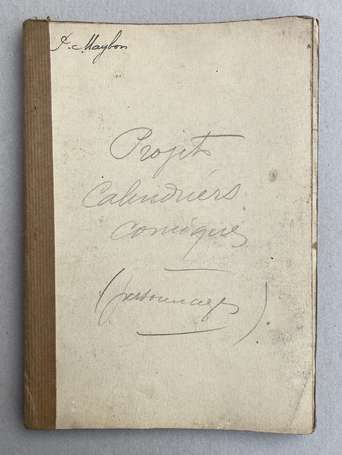 Maybon
Projets
Calendriers
comiques
(personnages)